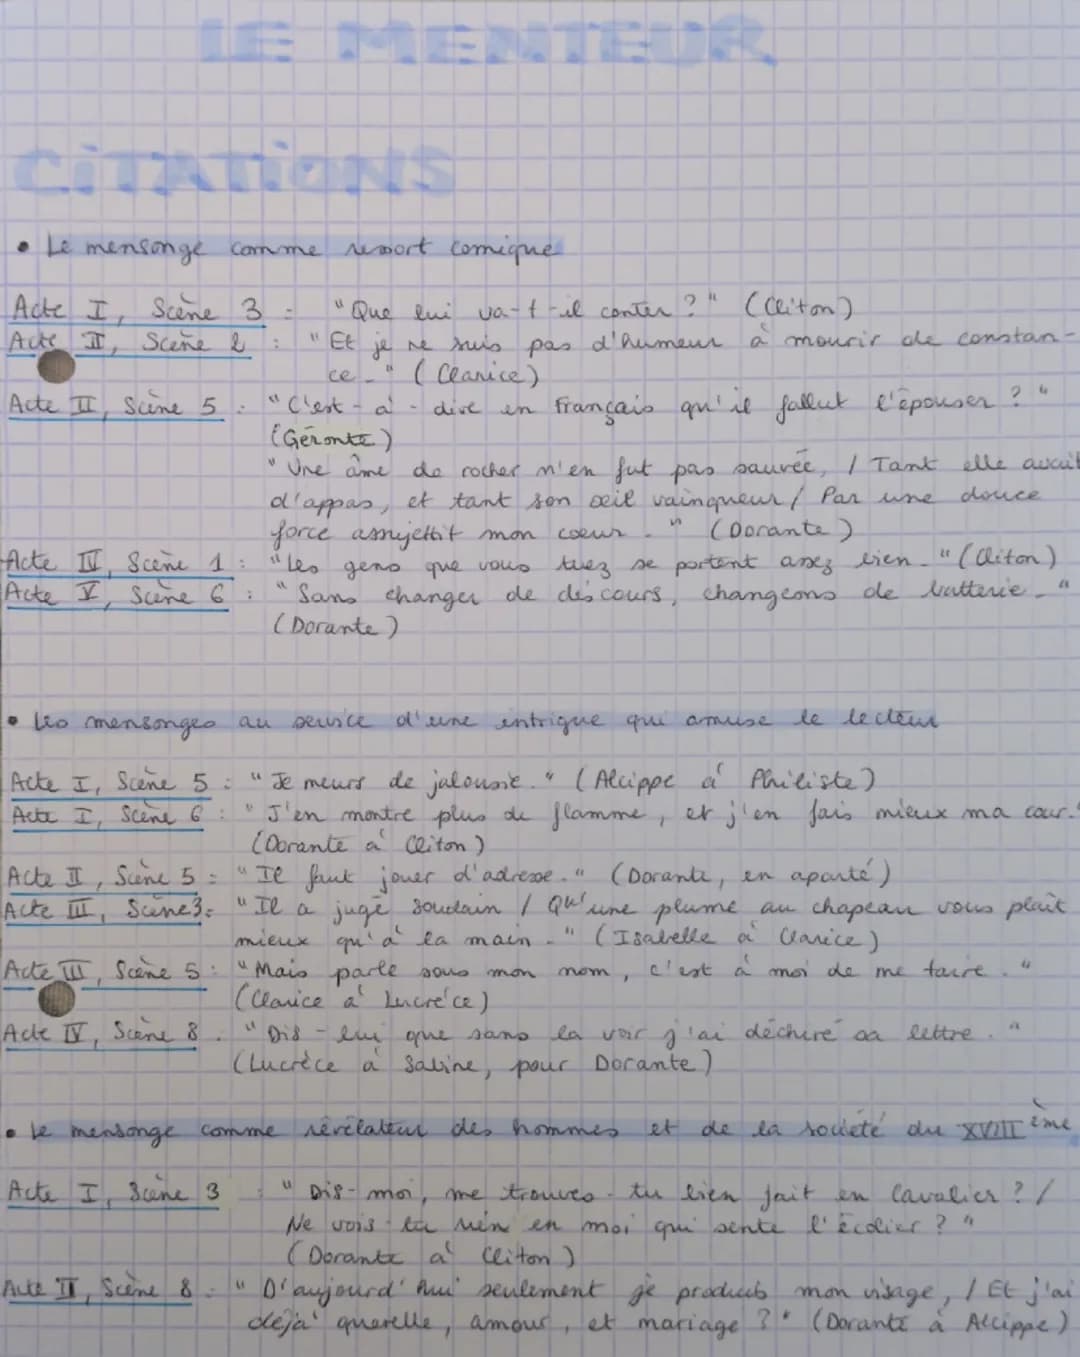 LE MENTEUR
CiTATiONS
• Le mensonge comme ressort comique
Acte I, Scène 3 : "Que lui va-t-il conter ?" (Cliton)
Acte II, Scène 2 : "Et je ne suis pas d'humeur à mourir de constan-
ce." (Clarice)
Acte II, Scène 5 : "C'est-à-dire en Français qu'il fallut l'épouser ?"
(Géronte)
"Une âme de rocher n'en fut pas sauvée, / Tant elle avait
d'appas, et tant son œil vainqueur / Par une douce
force assujettit mon cœur." (Dorante)
Acte IV, Scène 1 : "Les gens que vous tuez se portent assez bien." (Cliton)
Acte V, Scène 6 : "Sans changer de discours, changeons de batterie."
(Dorante)
• Les mensonges au service d'une intrigue qui amuse le lecteur
Acte I, Scène 5 : "Je meurs de jalousie." (Alcippe à Philiste)
Acte I, Scène 6 : "J'en montre plus de flamme, et j'en fais mieux ma cour."
(Dorante à Cliton)
Acte II, Scène 5 : "Il faut jouer d'adresse." (Dorante, en aparté)
Acte III, Scène 3 : "Il a jugé soudain / Qu'une plume au chapeau vous plaît
mieux qu'à la main." (Isabelle à Clarice)
Acte III, Scène 5 : "Mais parle sous mon nom, c'est à moi de me taire."
(Clarice à Lucrèce)
Acte IV, Scène 8 : "Dis-lui que sans la voir j'ai déchiré sa lettre."
(Lucrèce à Sabine, pour Dorante)
• Le mensonge comme révélateur des hommes et de la société du XVIII ème
Acte I, Scène 3 : "Dis-moi, me trouves-tu bien fait en Cavalier ? /
Ne vois-tu rien en moi qui sente l'écolier ?"
(Dorante à Cliton)
Acte II, Scène 8 : "D'aujourd'hui seulement je produis mon visage, / Et j'ai
déjà querelle, amour, et mariage ?" (Dorante à Alcippe)